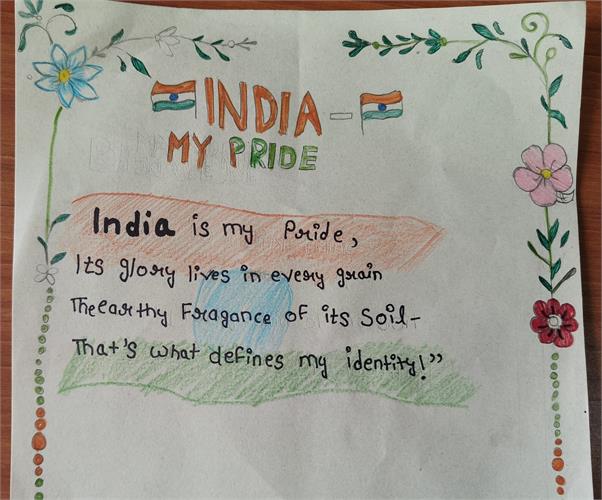 INDIA -
MY PRIDE
India is my Pride,
Its glory lives in every grain
The earthy Fragance of its Soil-
That's what defines my identity!”